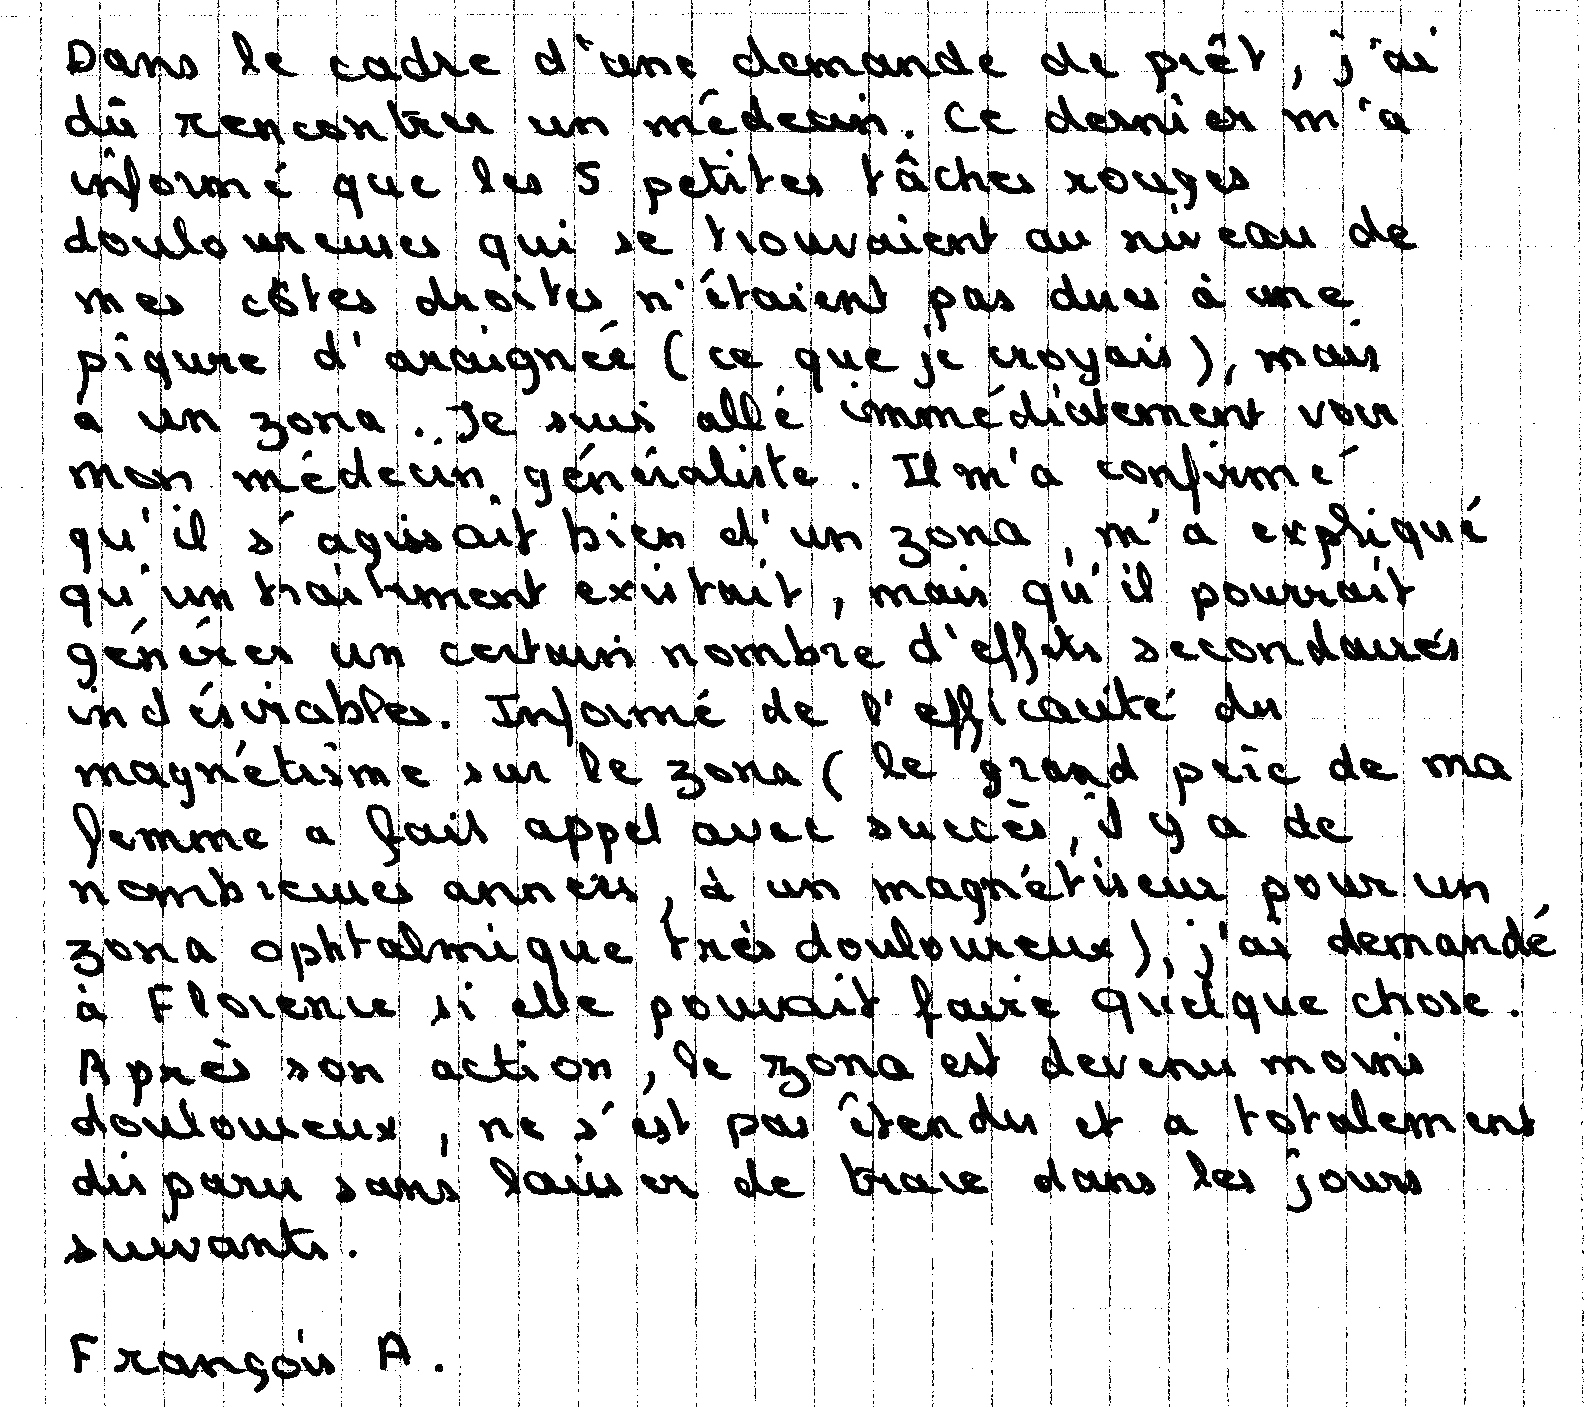 Dans le cadre d'une demande de prêt, j'ai
dû rencontrer un médecin. Ce dernier m'a
informé que les 5 petites tâches rouges
douloureuses qui se trouvaient au niveau de
mes côtes droites n'étaient pas dues à une
piqure d'araignée (ce que je croyais), mais
à un zona. Je suis allé immédiatement voir
mon médecin généraliste. Il m'a confirmé
qu'il s'agissait bien d'un zona, m'a expliqué
qu'un traitement existait, mais qu'il pourrait
générer un certain nombre d'effets secondaires
indésirables. Informé de l'efficacité du
magnétisme sur le zona (le grand père de ma
femme a fait appel avec succès, il y a de
nombreuses années, à un magnétiseur pour un
zona ophtalmique très douloureux), j'ai demandé
à Florence si elle pouvait faire quelque chose.
Après son action, le zona est devenu moins
douloureux, ne s'est pas étendu et a totalement
disparu sans laisser de trace dans les jours
suivants.
François A.